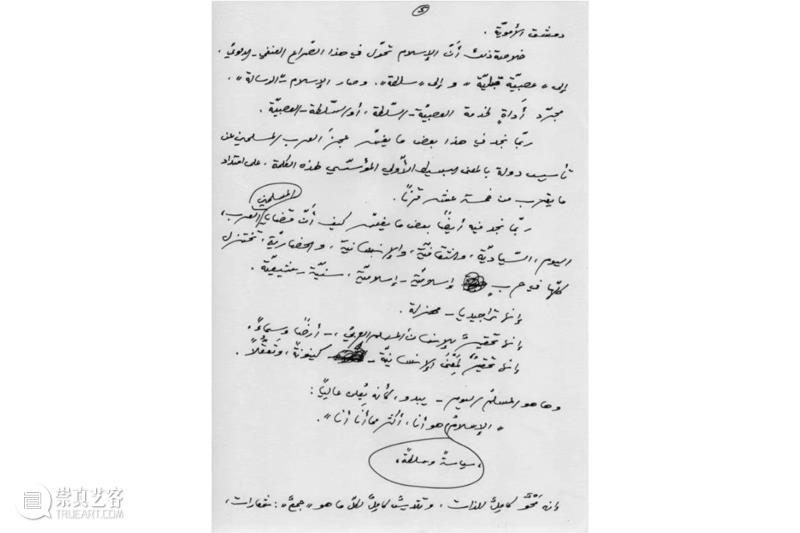 ٥
دمشق الأمويّة.
خلاصة ذلك أنّ الإسلام تحوّل في هذا الصّراع العنفيّ - الدمويّ،
إلى «عصبيّة قبليّة» و إلى «سلطة». وصار الإسلام - «الرسالة»،
مجرّد أداةٍ لخدمة العصبيّة - السّلطة، أو السّلطة - العصبيّة.
ربّما نجد في هذا بعض ما يفسّر عجزَ العرب المسلمين عن
تأسيس دولة بالمعنى البسيط الأوّلي المؤسّسي لهذه الكلمة، على امتداد
ما يقرب من خمسة عشر قرناً.
ربّما نجد فيه أيضاً بعض ما يفسّر كيف أنّ قضايا العرب المسلمين،
اليوم، السّياديّة، والثقافيّة، والإنسانية، والحضاريّة، تختزل
كلّها في حربٍ إسلاميّة - إسلاميّة، سنيّة - شيعيّة.
إنها تراجيديا - مهزلة.
إنها تحقيرٌ للإنسان المسلم العربيّ، - أرضاً وسماءً،
إنها تحقيرٌ لمعنى الإنسانيّة - كينونةً، وتَعقُّلاً.
وها هو المسلم اليوم - يبدو، كأنه يُعلن عالياً:
«الإسلامُ هو أنا، أكثر مما أنا أنا».
، سياسةً وسلطةً،
إنه مَحْوٌ كاملٌ للذات، وتقديسٌ كاملٌ لكلّ ما هو «جمعٌ»: شعارات،
崇真艺客
TRUEART.COM